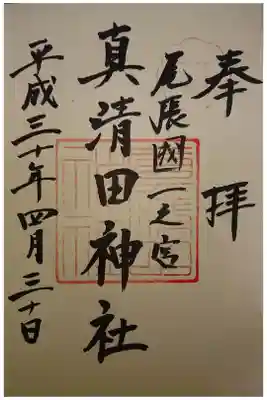 奉拝
尾張國一之宮
真清田神社
平成三十年四月三十日